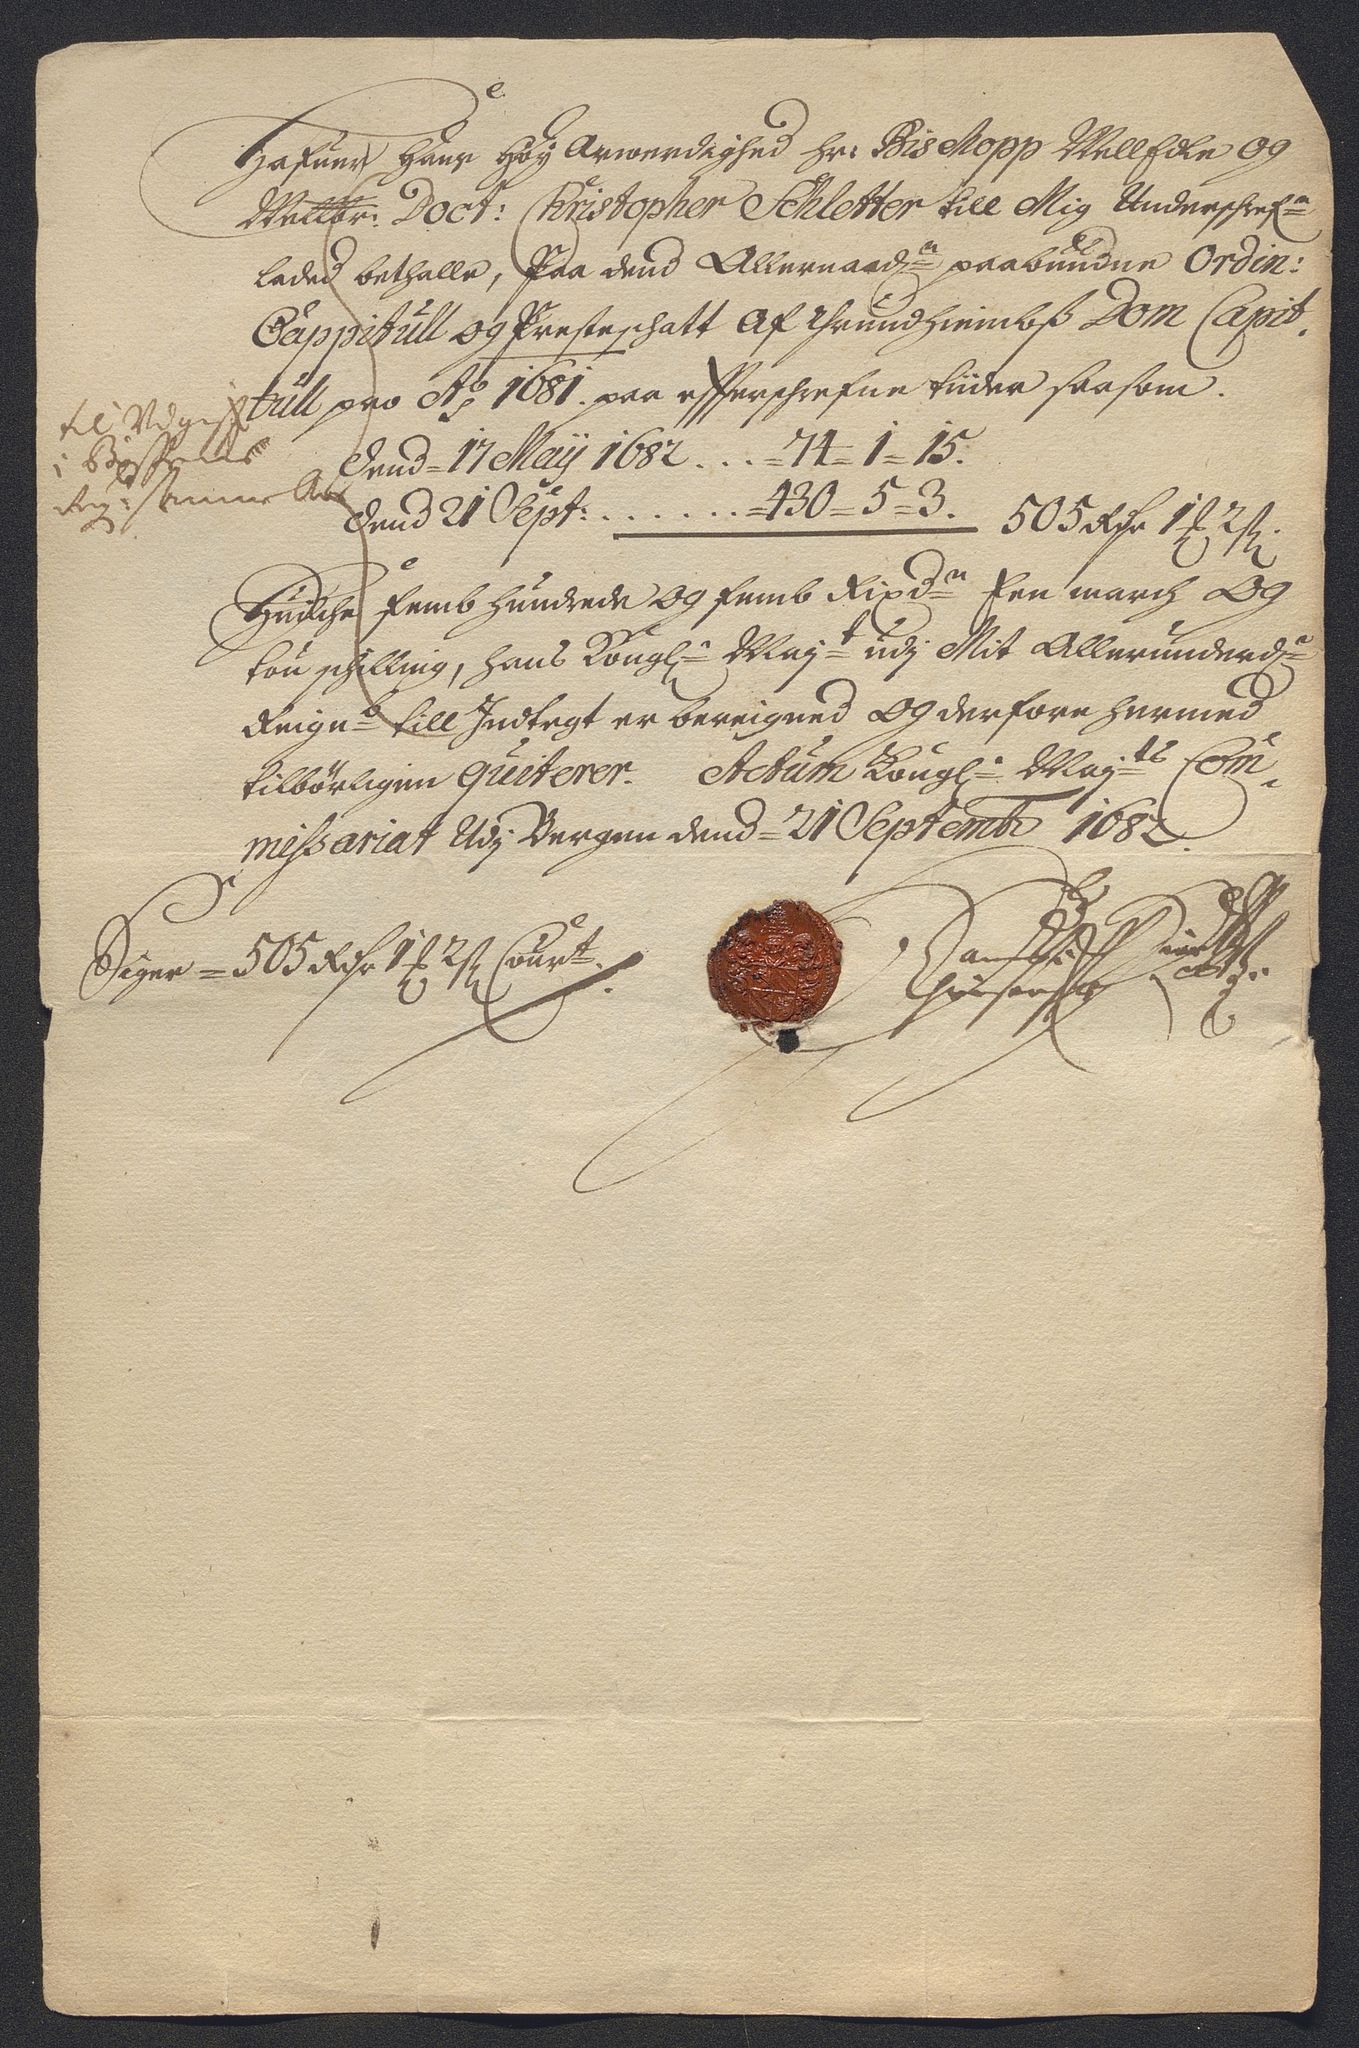 Hafuer Hans Høy Arwerdighed Hr: Bischopp Well Edle og
Welbr: Doct: Christopher Schletter till Mig Underschrefne
Laded bethalle, Paa dend Allernaadn paabudne Ordin:
Cappitull og Presteschatt Af Thrundhiembs Dom Capit
tull pro Ao 1681. paa effterschrefne tiider saasom.
til Udgift
i Bispens
Reg: samme Aar
Dend = 17 Maij 1682 . . . = 74 = 1 = 15.
Dend 21 Sept: . . . . . . . = 430 = 5 = 3. 505 Rdr 1 ℔ 2 ß.
Huilche femb hundrede og femb Rixdr Een march Og
tou schilling, hans Kongl: Mayt udj Mit Allerunderd:
Reignb till Indtegt er bereigned Og derfore hermed
tilbörligen Quiterer. Actum Kongl: Mayts Com
missariat Udj Bergen dend = 21 Septembr 1682.
Siger = 505 Rdr 1 ℔ 2 ß Court.